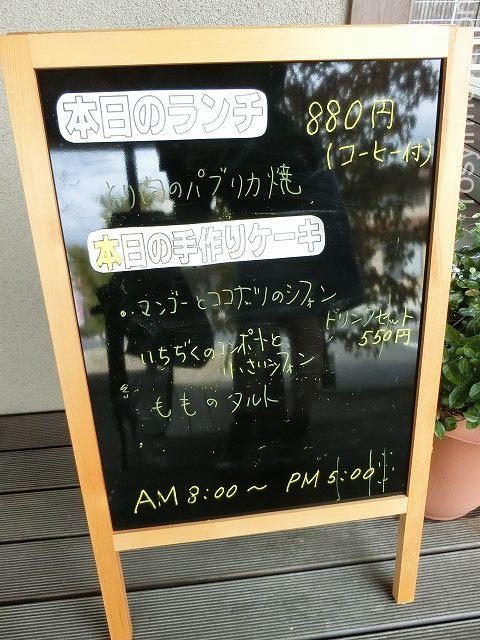 本日のランチ
880円
(コーヒー付)
とり肉のパプリカ焼
本日の手作りケーキ
マンゴーとココナッツのシフォン
ドリンクセット
550円
いちぢくのコンポートと
小さいシフォン
もものタルト
AM 8:00～PM 5:00